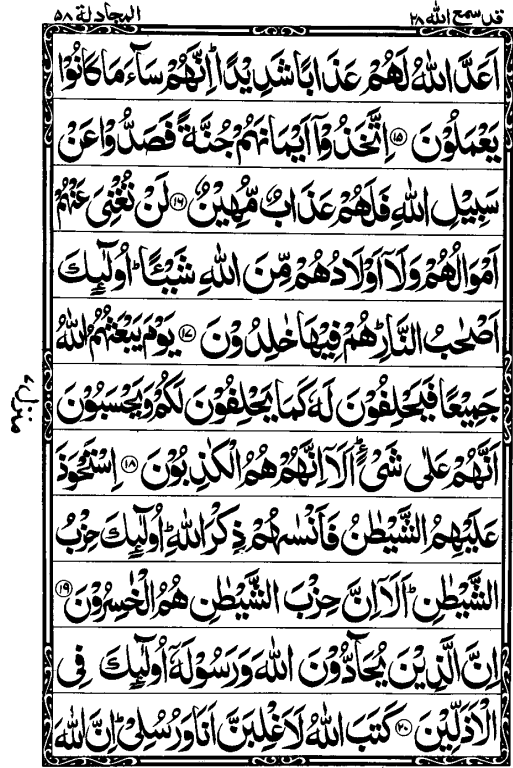 قد سمع الله ٢٨
المجادلة ٥٨
اَعَدَّ اللّٰهُ لَهُمْ عَذَابًا شَدِيْدًا ؕ اِنَّهُمْ سَآءَ مَا كَانُوْا
يَعْمَلُوْنَ ﴿۱۵﴾ اِتَّخَذُوْۤا اَيْمَانَهُمْ جُنَّةً فَصَدُّوْا عَنْ
سَبِيْلِ اللّٰهِ فَلَهُمْ عَذَابٌ مُّهِيْنٌ ﴿۱۶﴾ لَنْ تُغْنِيَ عَنْهُمْ
اَمْوَالُهُمْ وَلَاۤ اَوْلَادُهُمْ مِّنَ اللّٰهِ شَيْـًٔا ؕ اُولٰٓئِكَ
اَصْحٰبُ النَّارِ ؕ هُمْ فِيْهَا خٰلِدُوْنَ ﴿۱۷﴾ يَوْمَ يَبْعَثُهُمُ اللّٰهُ
جَمِيْعًا فَيَحْلِفُوْنَ لَهٗ كَمَا يَحْلِفُوْنَ لَكُمْ وَيَحْسَبُوْنَ
اَنَّهُمْ عَلٰى شَيْءٍ ؕ اَلَاۤ اِنَّهُمْ هُمُ الْكٰذِبُوْنَ ﴿۱۸﴾ اِسْتَحْوَذَ
عَلَيْهِمُ الشَّيْطٰنُ فَاَنْسٰىهُمْ ذِكْرَ اللّٰهِ ؕ اُولٰٓئِكَ حِزْبُ
الشَّيْطٰنِ ؕ اَلَاۤ اِنَّ حِزْبَ الشَّيْطٰنِ هُمُ الْخٰسِرُوْنَ ﴿۱۹﴾
اِنَّ الَّذِيْنَ يُحَآدُّوْنَ اللّٰهَ وَرَسُوْلَهٗۤ اُولٰٓئِكَ فِي
الْاَذَلِّيْنَ ﴿۲۰﴾ كَتَبَ اللّٰهُ لَاَغْلِبَنَّ اَنَا وَرُسُلِيْ ؕ اِنَّ اللّٰهَ
منزل ۷